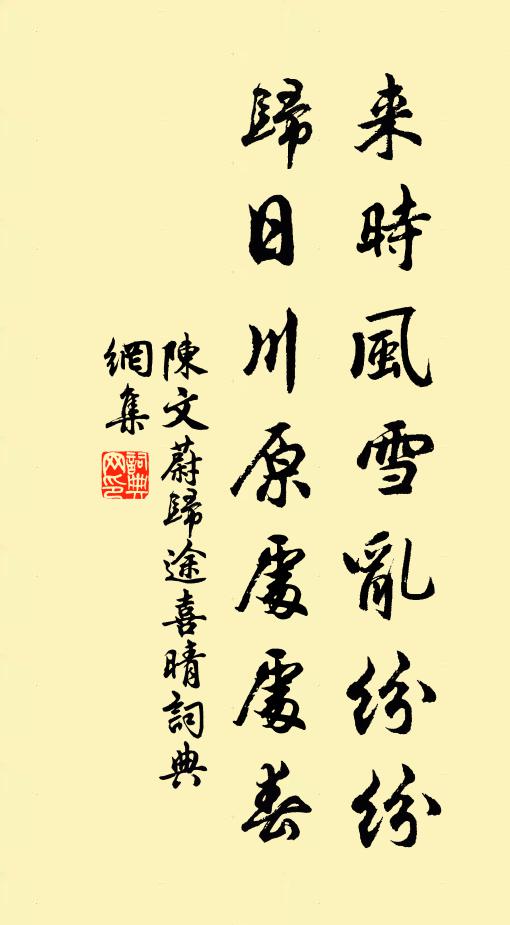 来時風雪亂紛紛
歸日川原處處春
陳文蔚歸途喜晴詞典
網集
詞典網印